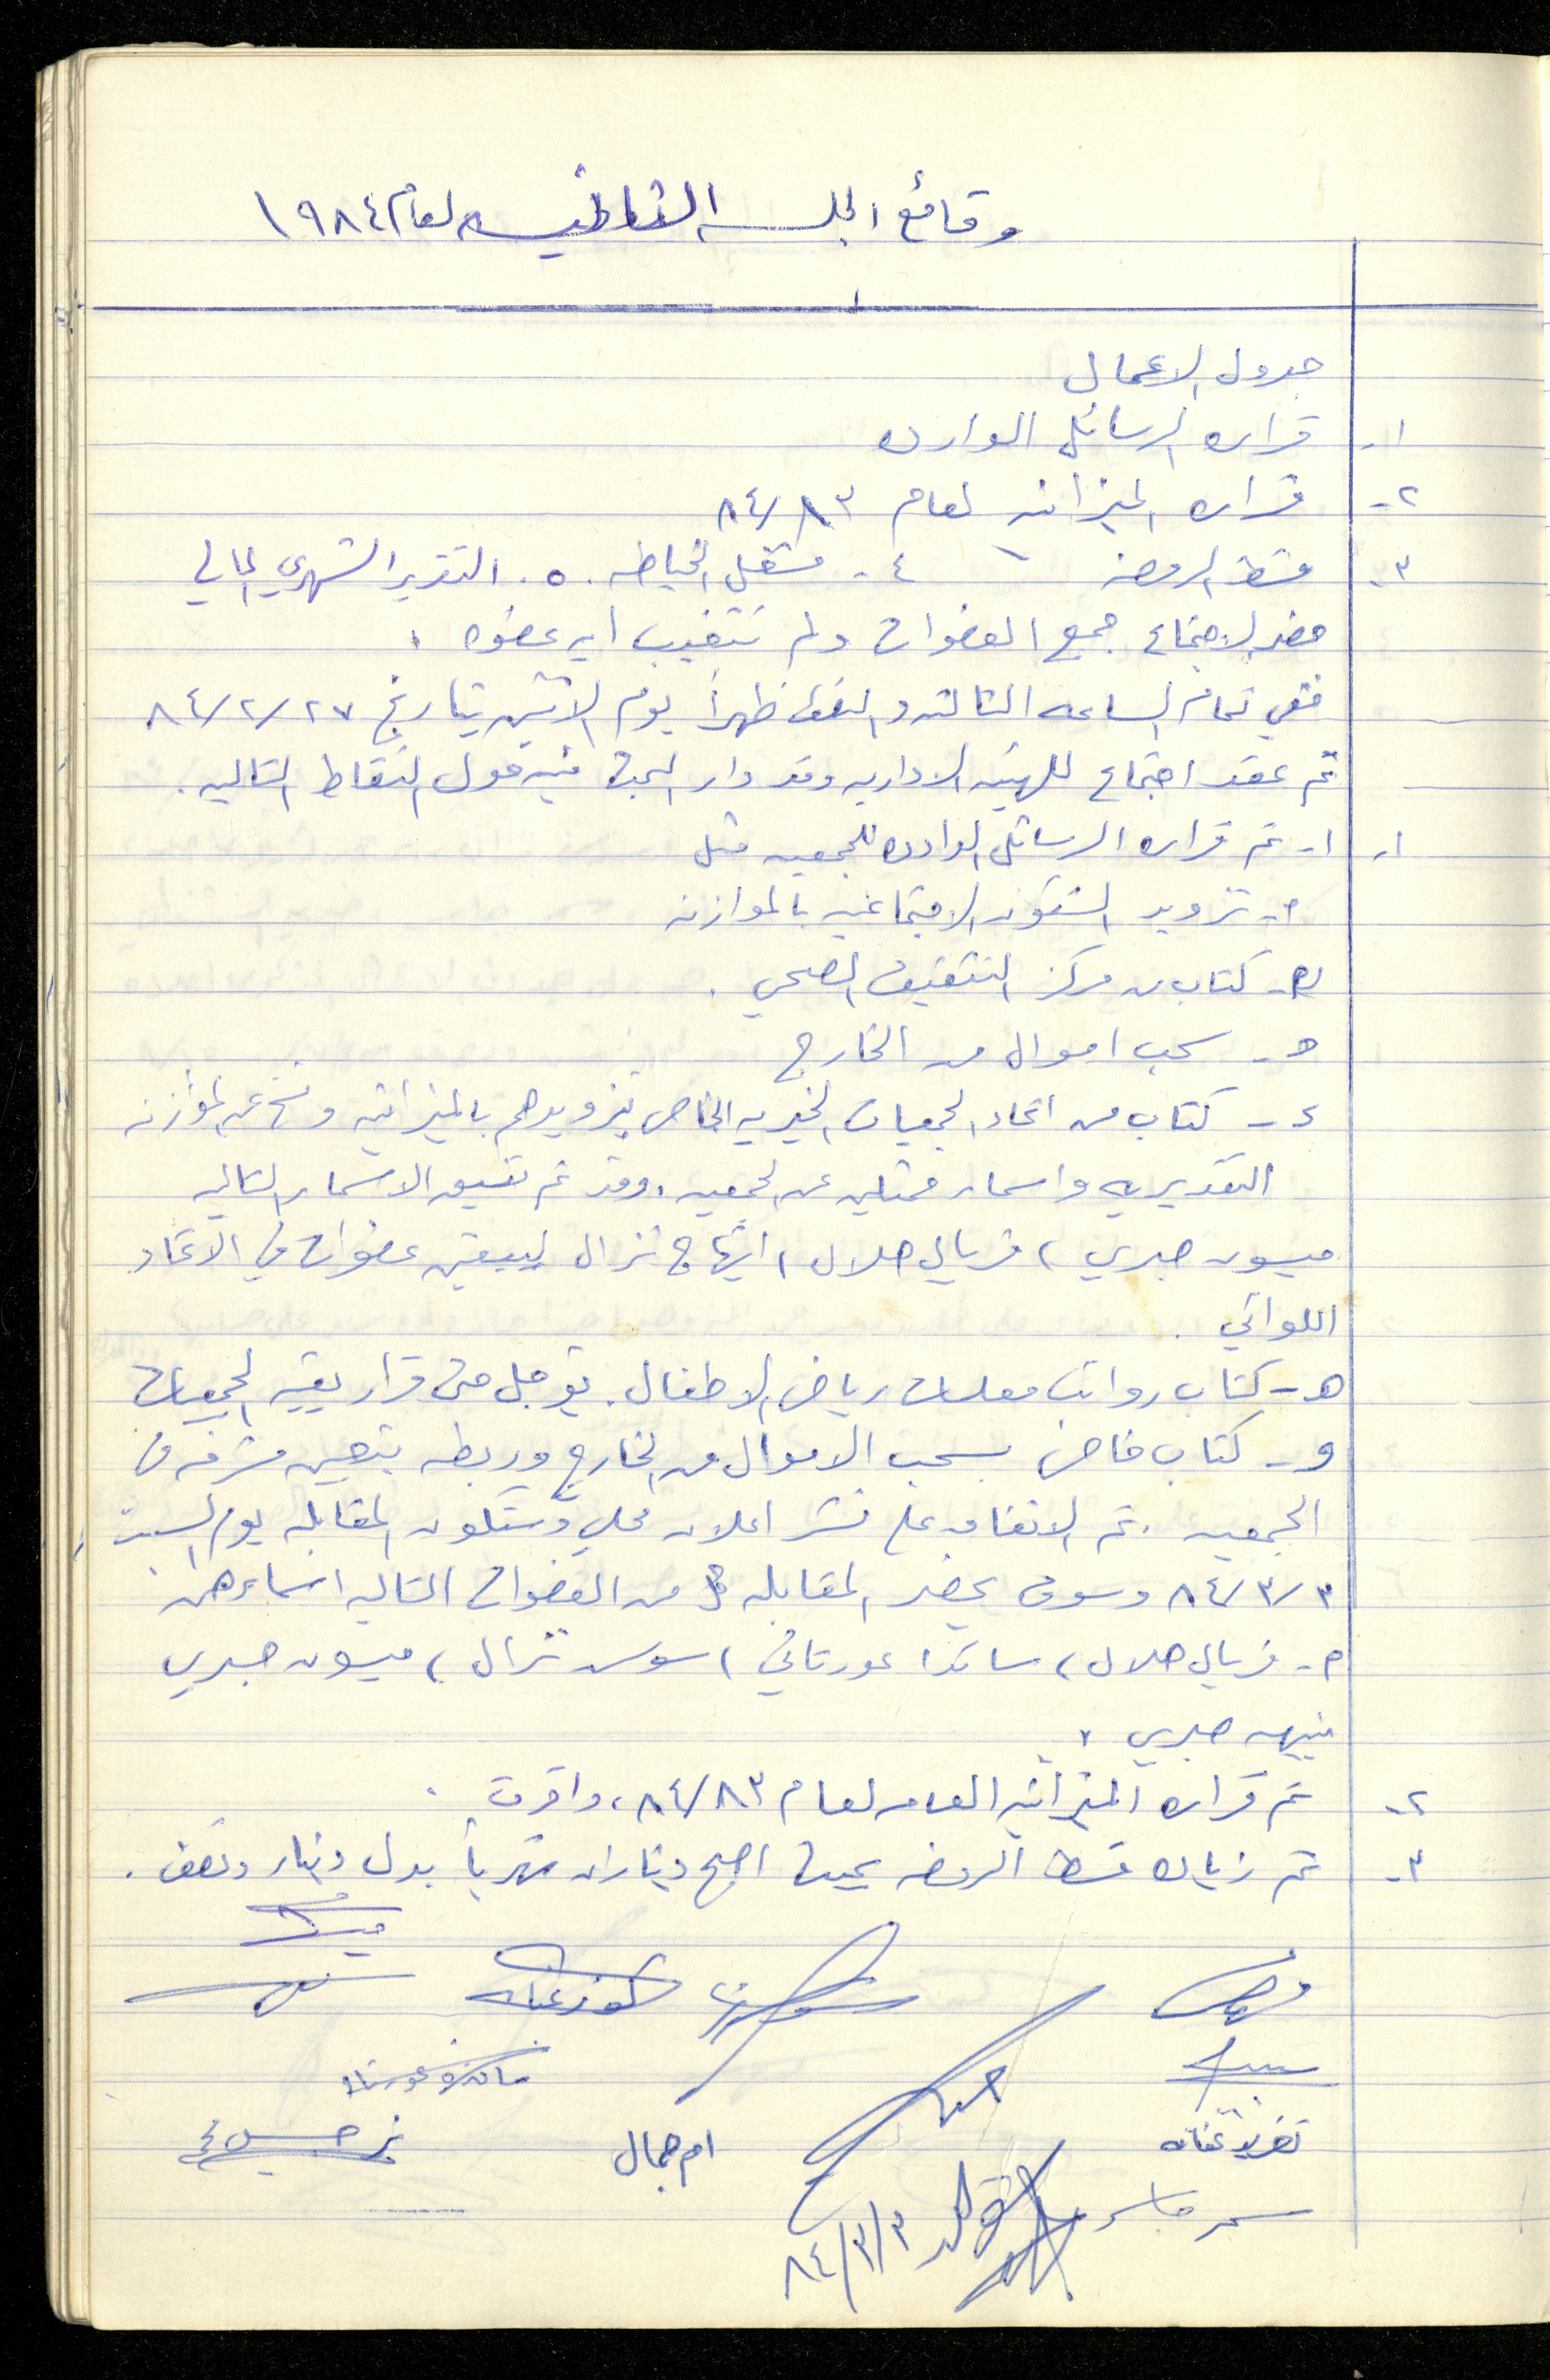 وقائع الجلسه الثانيه لعام ١٩٨٤
جدول الاعمال
١- قراءه الرسائل الوارده
٢- قراءه الميزانيه لعام ٨٤/٨٣
٣- قسط الروضه ٤- مشغل الخياطه ٥- التقرير الشهري المالي
حضر الاجتماع جميع العضوات ولم تتغيب ايه عضوه .
ففي تمام الساعه الثالثه والنصف ظهراً يوم الاثنين بتاريخ ٨٤/٢/٢٧
تم عقد اجتماع للهيئه الاداريه وقد دار البحث فيه حول النقاط التاليه .
١- ١- تم قراءه الرسائل الوارده للجمعيه مثل
م- تزويد الشئون الاجتماعيه بالموازنه
ن- كتاب من مركز التثقيف الصحي .
هـ- سحب اموال من الخارج
د- كتاب من اتحاد الجمعيات الخيريه الخاص بتزويدهم بالميزانيه ونسخ عن الموازنه
التقديريه واسماء ممثلين عن الجمعيه . وقد تم تنسيق الاسماء التاليه
ميسون صبري ، فريال هلال ، ابتهاج نزال ليبقين عضوات في الاتحاد
اللواتي .
هـ- كتاب رواتب معلمات رياض الاطفال . يؤجل حتى قرار بقيه الجمعيات
و- كتاب خاص بسحب الاموال من الخارج وربطه بتعيين مشرفه في
الجمعيه . تم الاتفاق على نشر اعلان محلي وستكون المقابله يوم السبت
٨٤/٣/٣ وسوف يحضر المقابله من العضوات التاليه اسماءهن
م- فريال هلال ، ساندا عورتاني ، سوسن نزال ، ميسون صبري
نبيهه صبري .
٢- تم قراءه الميزانيه العامه لعام ٨٤/٨٣ ، واقرت .
٣- تم زياده قسط الروضه بحيث اصبح ديناران شهرياً بدل دينار ونصف .
تغريد عنايه
ام جمال
سمر جاسر
٨٤/٣/٣